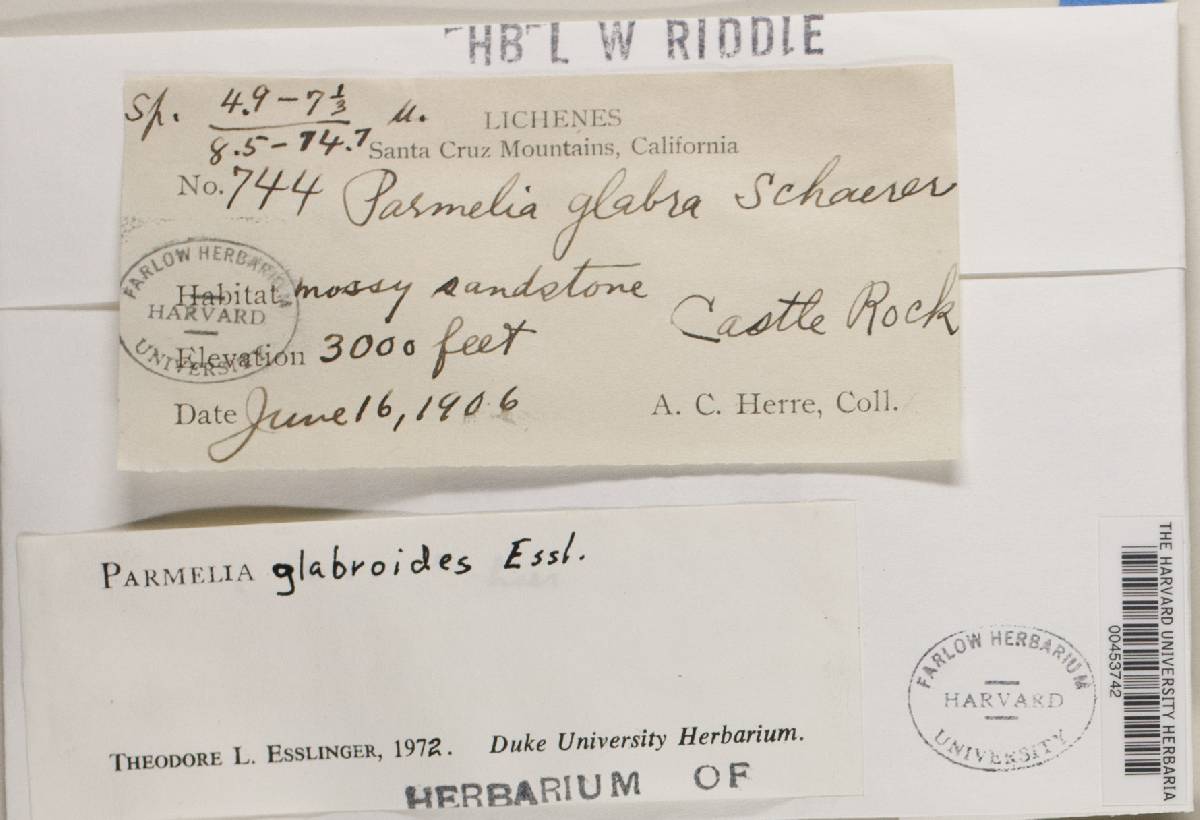 HB L W RIDDLE
Sp. 4.9 – 7⅓ / 8.5 – 14.7 u.
LICHENES
Santa Cruz Mountains, California
No. 744 Parmelia glabra Schaerer
FARLOW HERBARIUM
HARVARD
UNIVERSITY
Habitat mossy sandstone
Castle Rock
Elevation 3000 feet
Date June 16, 1906
A. C. Herre, Coll.
PARMELIA glabroides Essl.
THEODORE L. ESSLINGER, 1972. Duke University Herbarium.
HERBARIUM OF
FARLOW HERBARIUM
HARVARD
UNIVERSITY
THE HARVARD UNIVERSITY HERBARIA
00453742